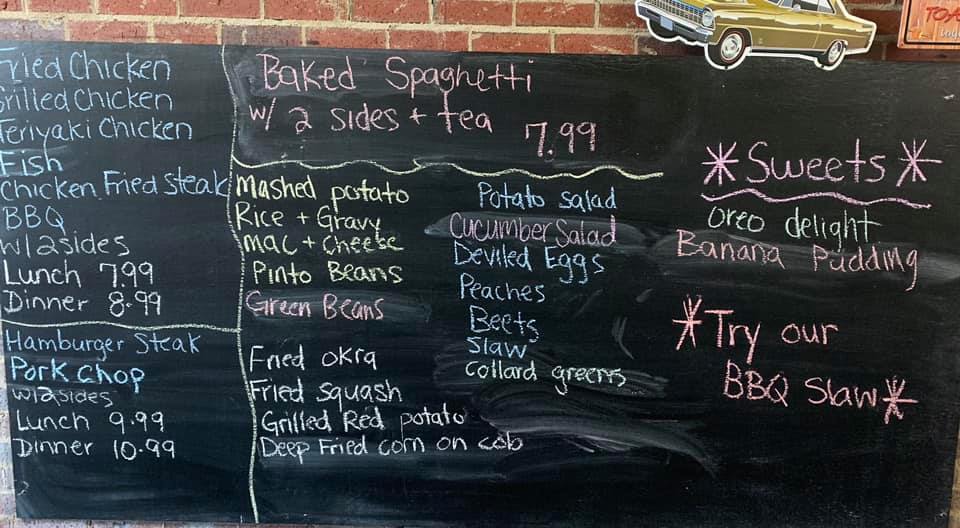 Fried Chicken
Grilled Chicken
Teriyaki Chicken
Fish
Chicken Fried Steak
BBQ
w/2sides
Lunch 7.99
Dinner 8.99
Hamburger Steak
Pork chop
w/2sides
Lunch 9.99
Dinner 10.99
Baked Spaghetti
w/ 2 sides + tea 7.99
Mashed potato
Rice + Gravy
mac + cheese
Pinto Beans
Green Beans
Fried okra
Fried squash
Grilled Red potato
Deep Fried corn on cob
Potato salad
Cucumber Salad
Deviled Eggs
Peaches
Beets
Slaw
collard greens
*Sweets*
oreo delight
Banana Pudding
*Try our
BBQ Slaw*